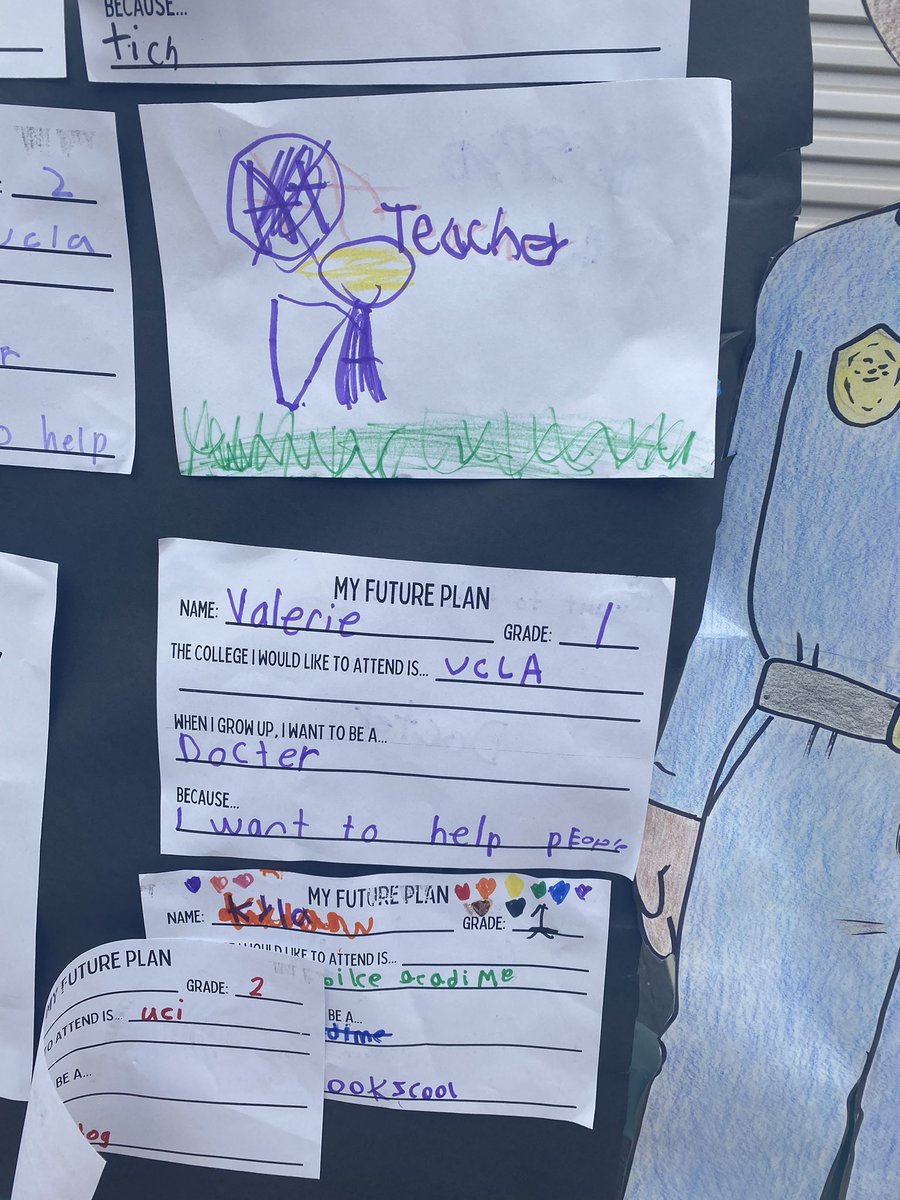 BECAUSE...
tich
2
ucla
help
Teacher
MY FUTURE PLAN
NAME: Valerie GRADE: 1
THE COLLEGE I WOULD LIKE TO ATTEND IS... UCLA
WHEN I GROW UP, I WANT TO BE A...
Docter
BECAUSE...
I want to help pEople
MY FUTURE PLAN
NAME: Kyla GRADE: 1
I WOULD LIKE TO ATTEND IS...
acadime
BE A...
MY FUTURE PLAN
GRADE: 2
TO ATTEND IS... uci
BE A...